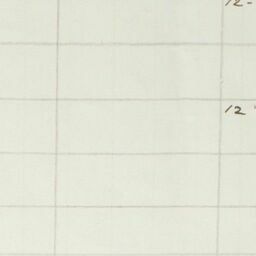 12-
12 "